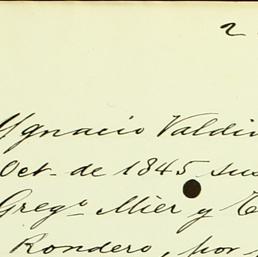 2
Ygnacio Valdi
Oct. de 1845 sus
Greg.º Mier y T
Rondero, por